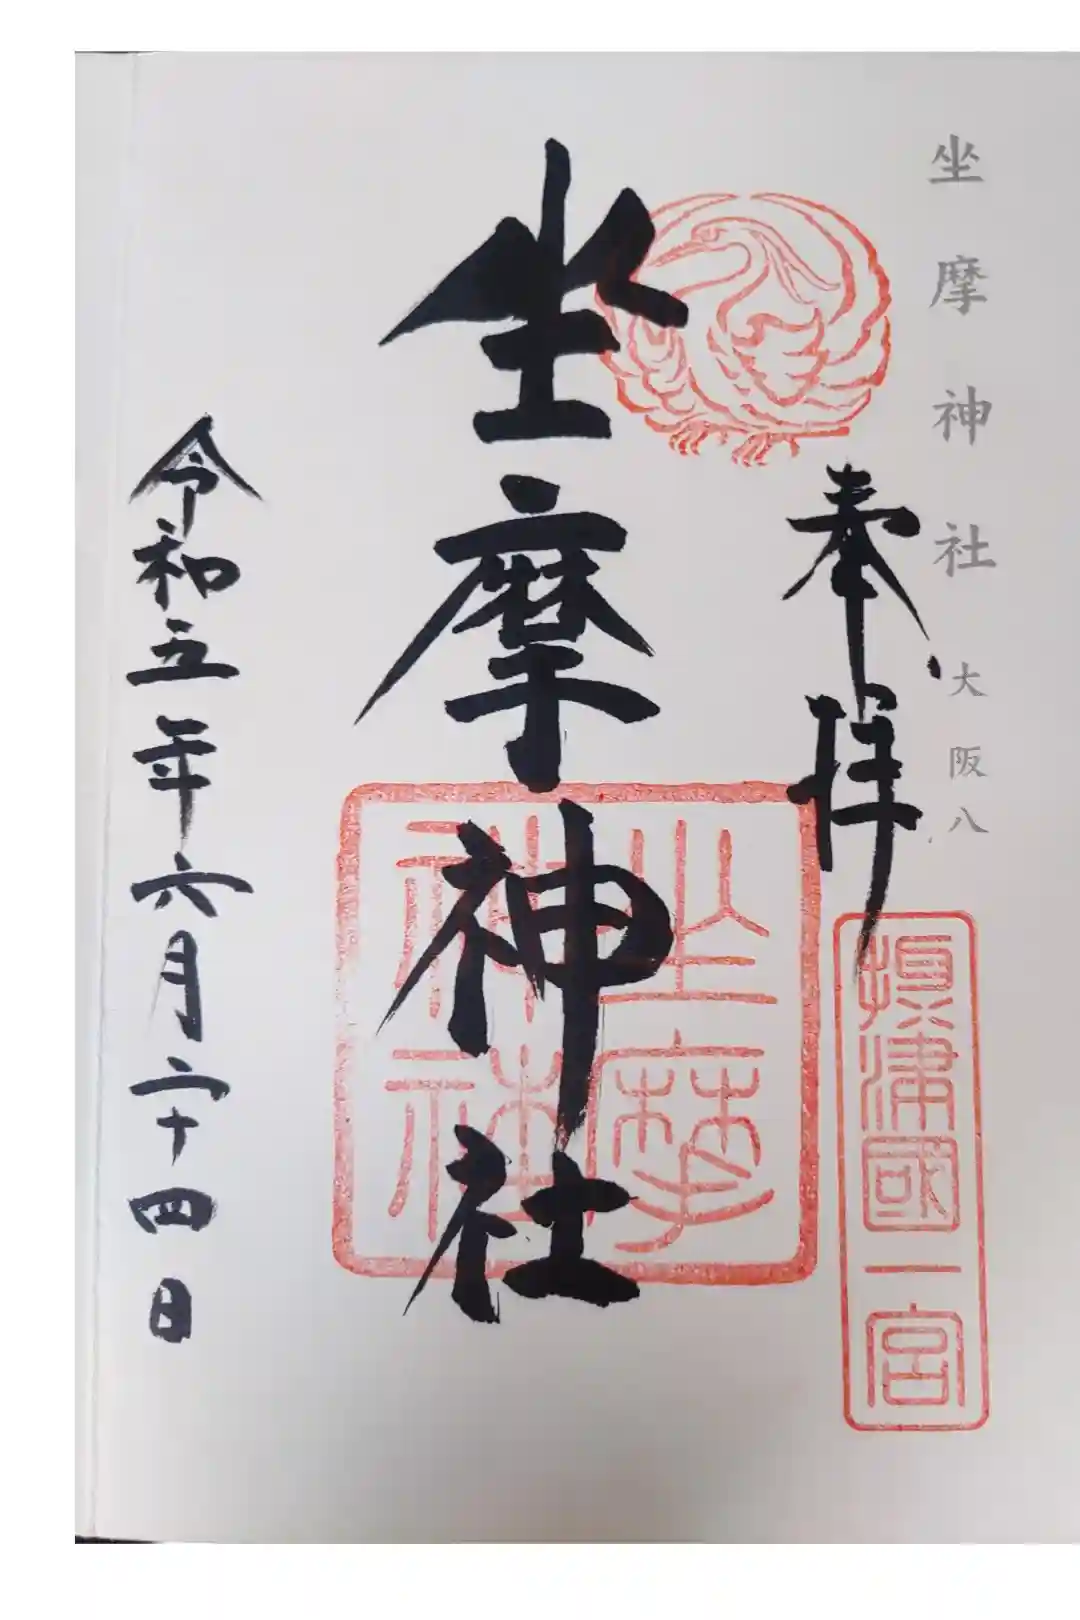 坐摩神社 大阪八
奉拝
摂津國一宮
坐摩神社
坐摩
神社
令和五年六月二十四日